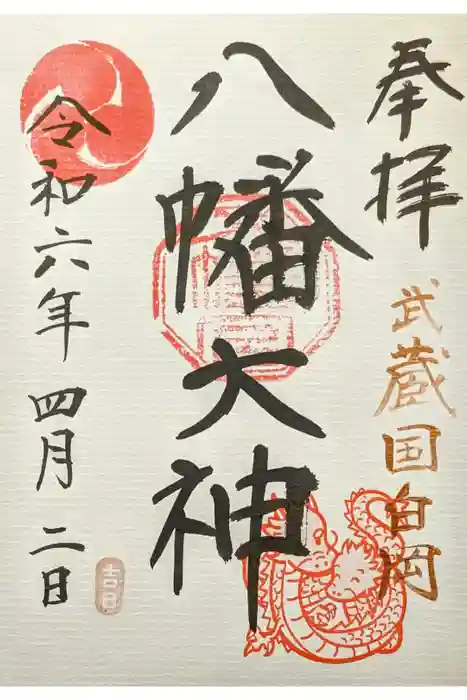 奉拝
武蔵国白岡
八幡大神
令和六年四月二日
吉日